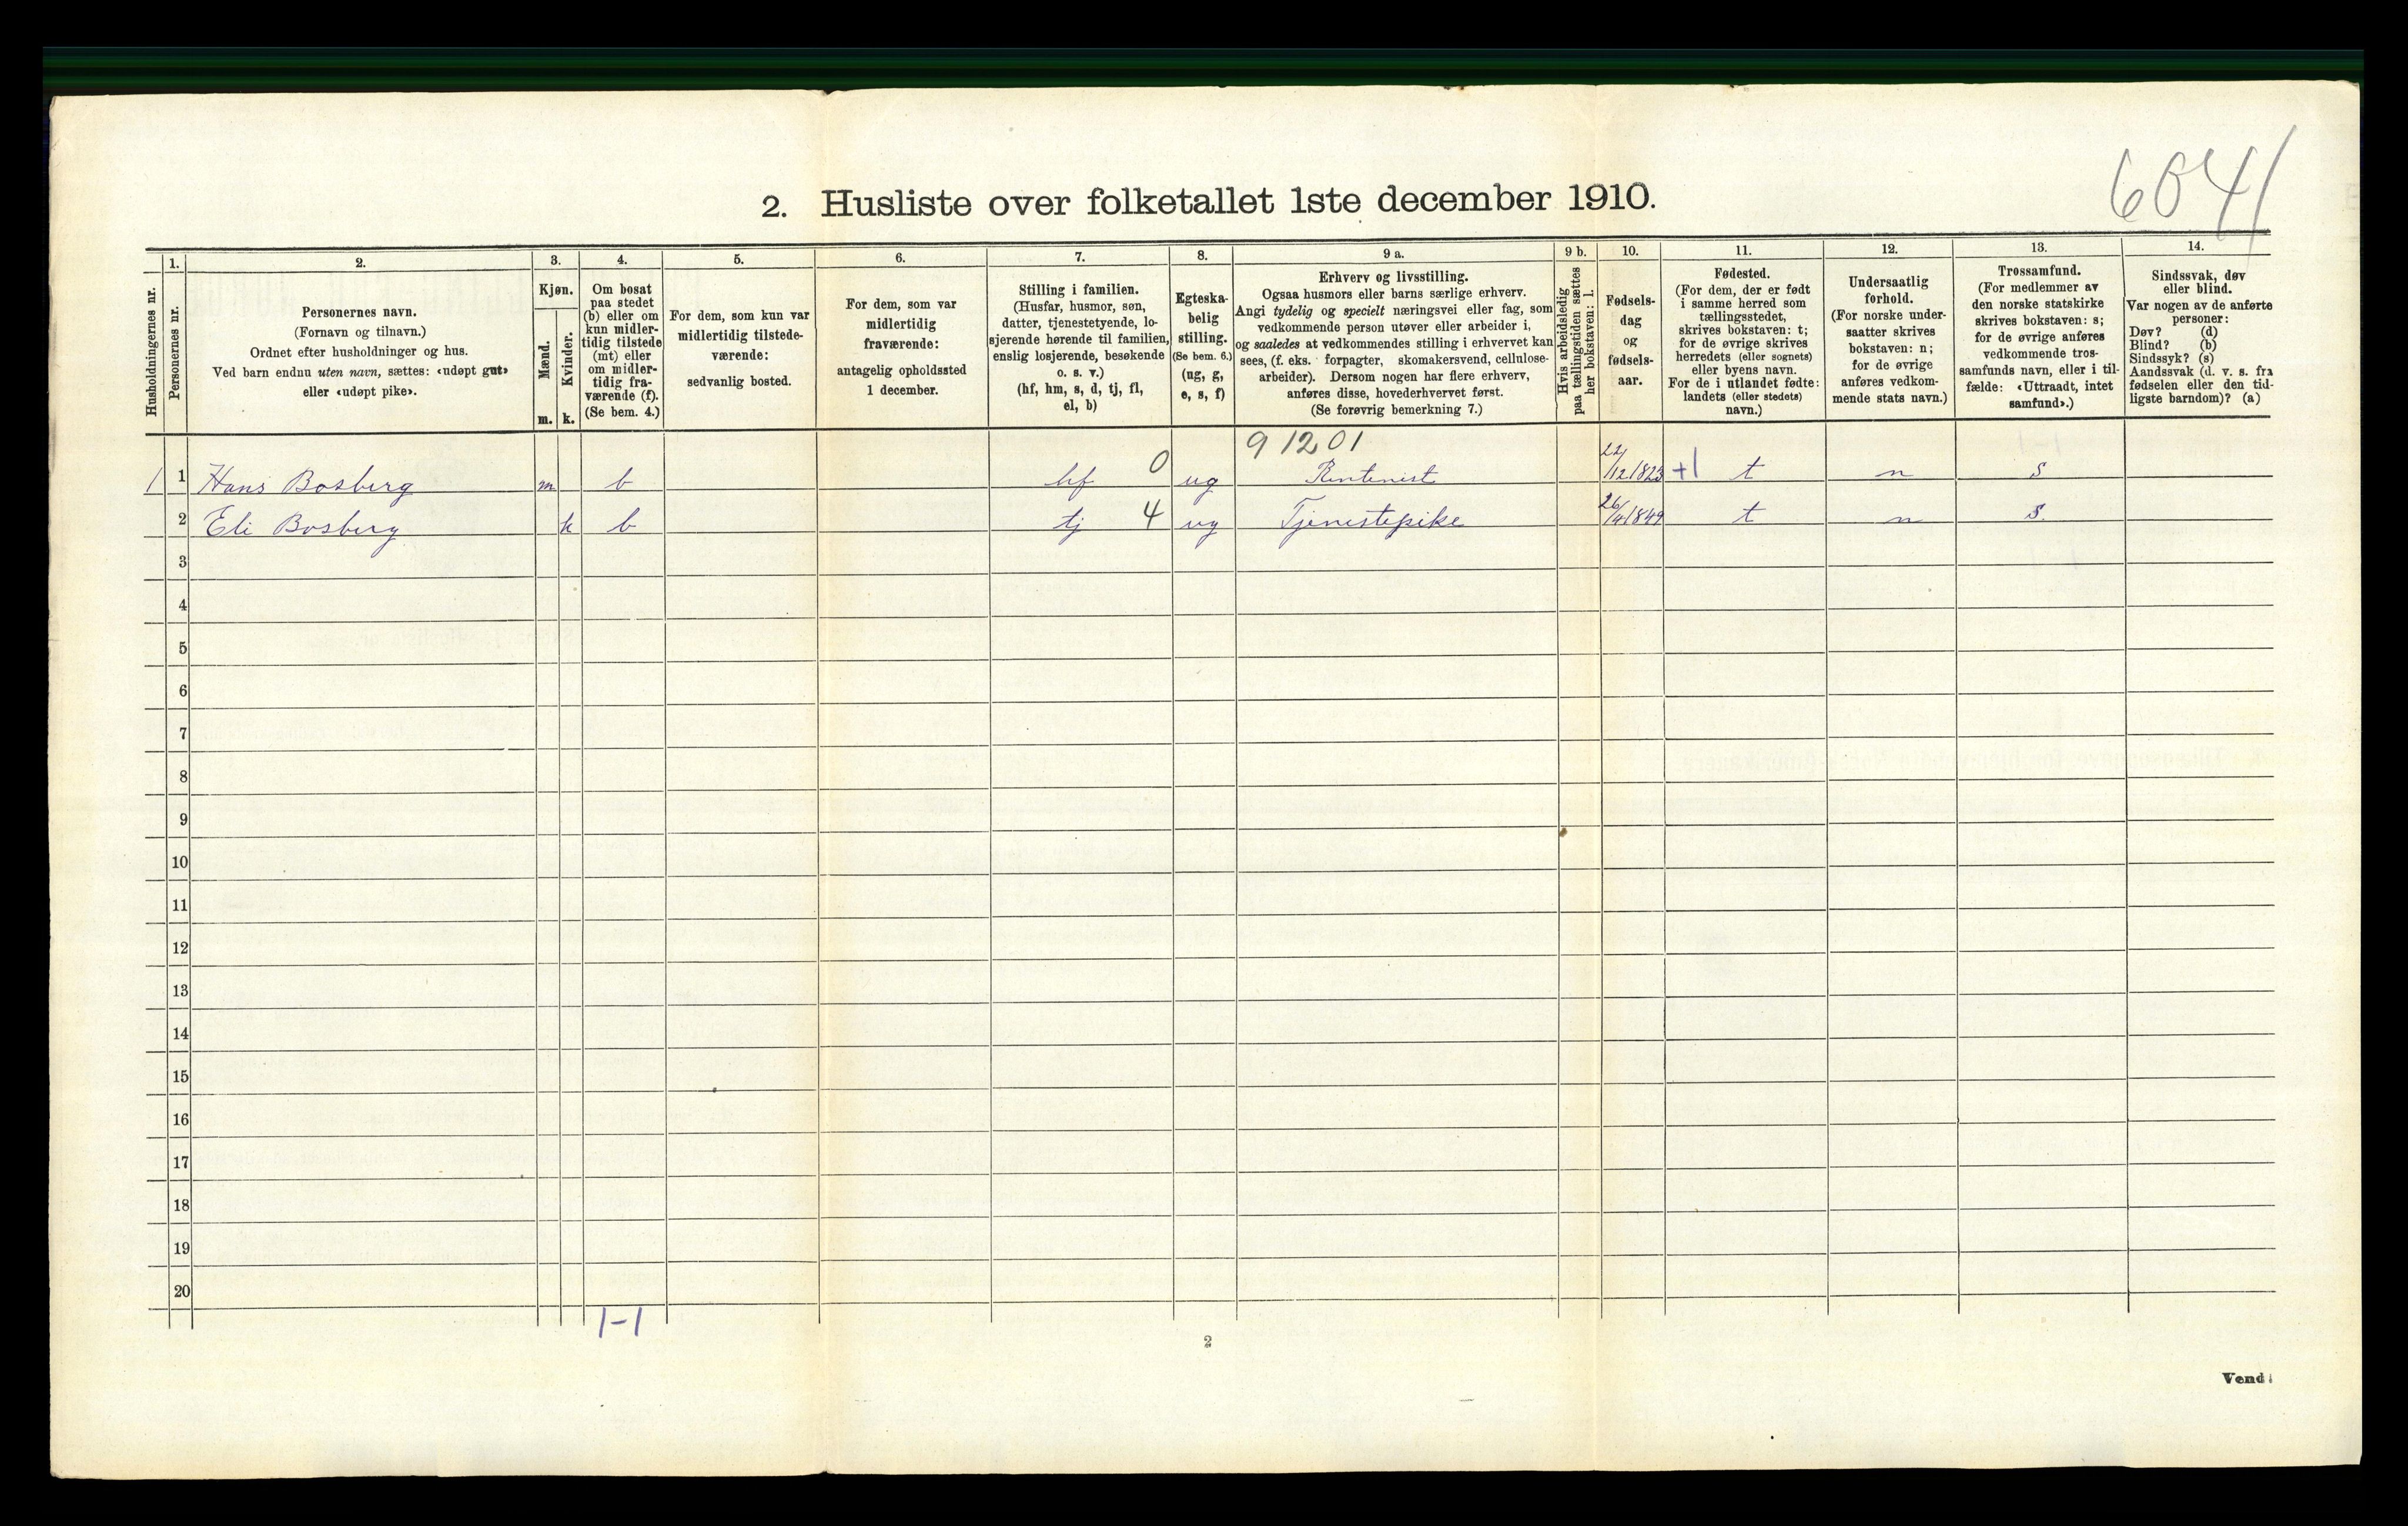 6041
2. Husliste over folketallet 1ste december 1910.
Husholdningernes nr.
1.
Personernes nr.
2.
Personernes navn.
(Fornavn og tilnavn.)
Ordnet efter husholdninger og hus.
Ved barn endnu uten navn, sættes: «udøpt gut»
eller «udøpt pike».
3.
Kjøn.
Mænd.
Kvinder.
m. k.
4.
Om bosat
paa stedet
(b) eller om
kun midler-
tidig tilstede
(mt) eller
om midler-
tidig fra-
værende (f).
(Se bem. 4.)
5.
For dem, som kun var
midlertidig tilstede-
værende:
sedvanlig bosted.
6.
For dem, som var
midlertidig
fraværende:
antagelig opholdssted
1 december.
7.
Stilling i familien.
(Husfar, husmor, søn,
datter, tjenestetyende, lo-
sjerende hørende til familien,
enslig losjerende, besøkende
o. s. v.)
(hf, hm, s, d, tj, fl,
el, b)
8.
Egteska-
belig
stilling.
(Se bem. 6.)
(ug, g,
e, s, f)
9 a.
Erhverv og livsstilling.
Ogsaa husmors eller barns særlige erhverv.
Angi tydelig og specielt næringsvei eller fag, som
vedkommende person utøver eller arbeider i,
og saaledes at vedkommendes stilling i erhvervet kan
sees, (f. eks. forpagter, skomakersvend, cellulose-
arbeider). Dersom nogen har flere erhverv,
anføres disse, hovederhvervet først.
(Se forøvrig bemerkning 7.)
9 b.
Hvis arbeidsledig
paa tællingstiden sættes
her bokstaven: l.
10.
Fødsels-
dag
og
fødsels-
aar.
11.
Fødested.
(For dem, der er født
i samme herred som
tællingsstedet,
skrives bokstaven: t;
for de øvrige skrives
herredets (eller sognets)
eller byens navn.
For de i utlandet fødte:
landets (eller stedets)
navn.)
12.
Undersaatlig
forhold.
(For norske under-
saatter skrives
bokstaven: n;
for de øvrige
anføres vedkom-
mende stats navn.)
13.
Trossamfund.
(For medlemmer av
den norske statskirke
skrives bokstaven: s;
for de øvrige anføres
vedkommende tros-
samfunds navn, eller i til-
fælde: «Uttraadt, intet
samfund».)
14.
Sindssvak, døv
eller blind.
Var nogen av de anførte
personer:
Døv? (d)
Blind? (b)
Sindssyk? (s)
Aandssvak (d. v. s. fra
fødselen eller den tid-
ligste barndom)? (a)
91201
1 1 Hans Bosberg m b hf 0 ug Rentenist 22/12 1823 +1 t n s
2 Eli Bosberg k b tj 4 ug Tjenestepike 26/4 1849 t n s.
3
4
5
6
7
8
9
10
11
12
13
14
15
16
17
18
19
20
1-1
2
Vend!